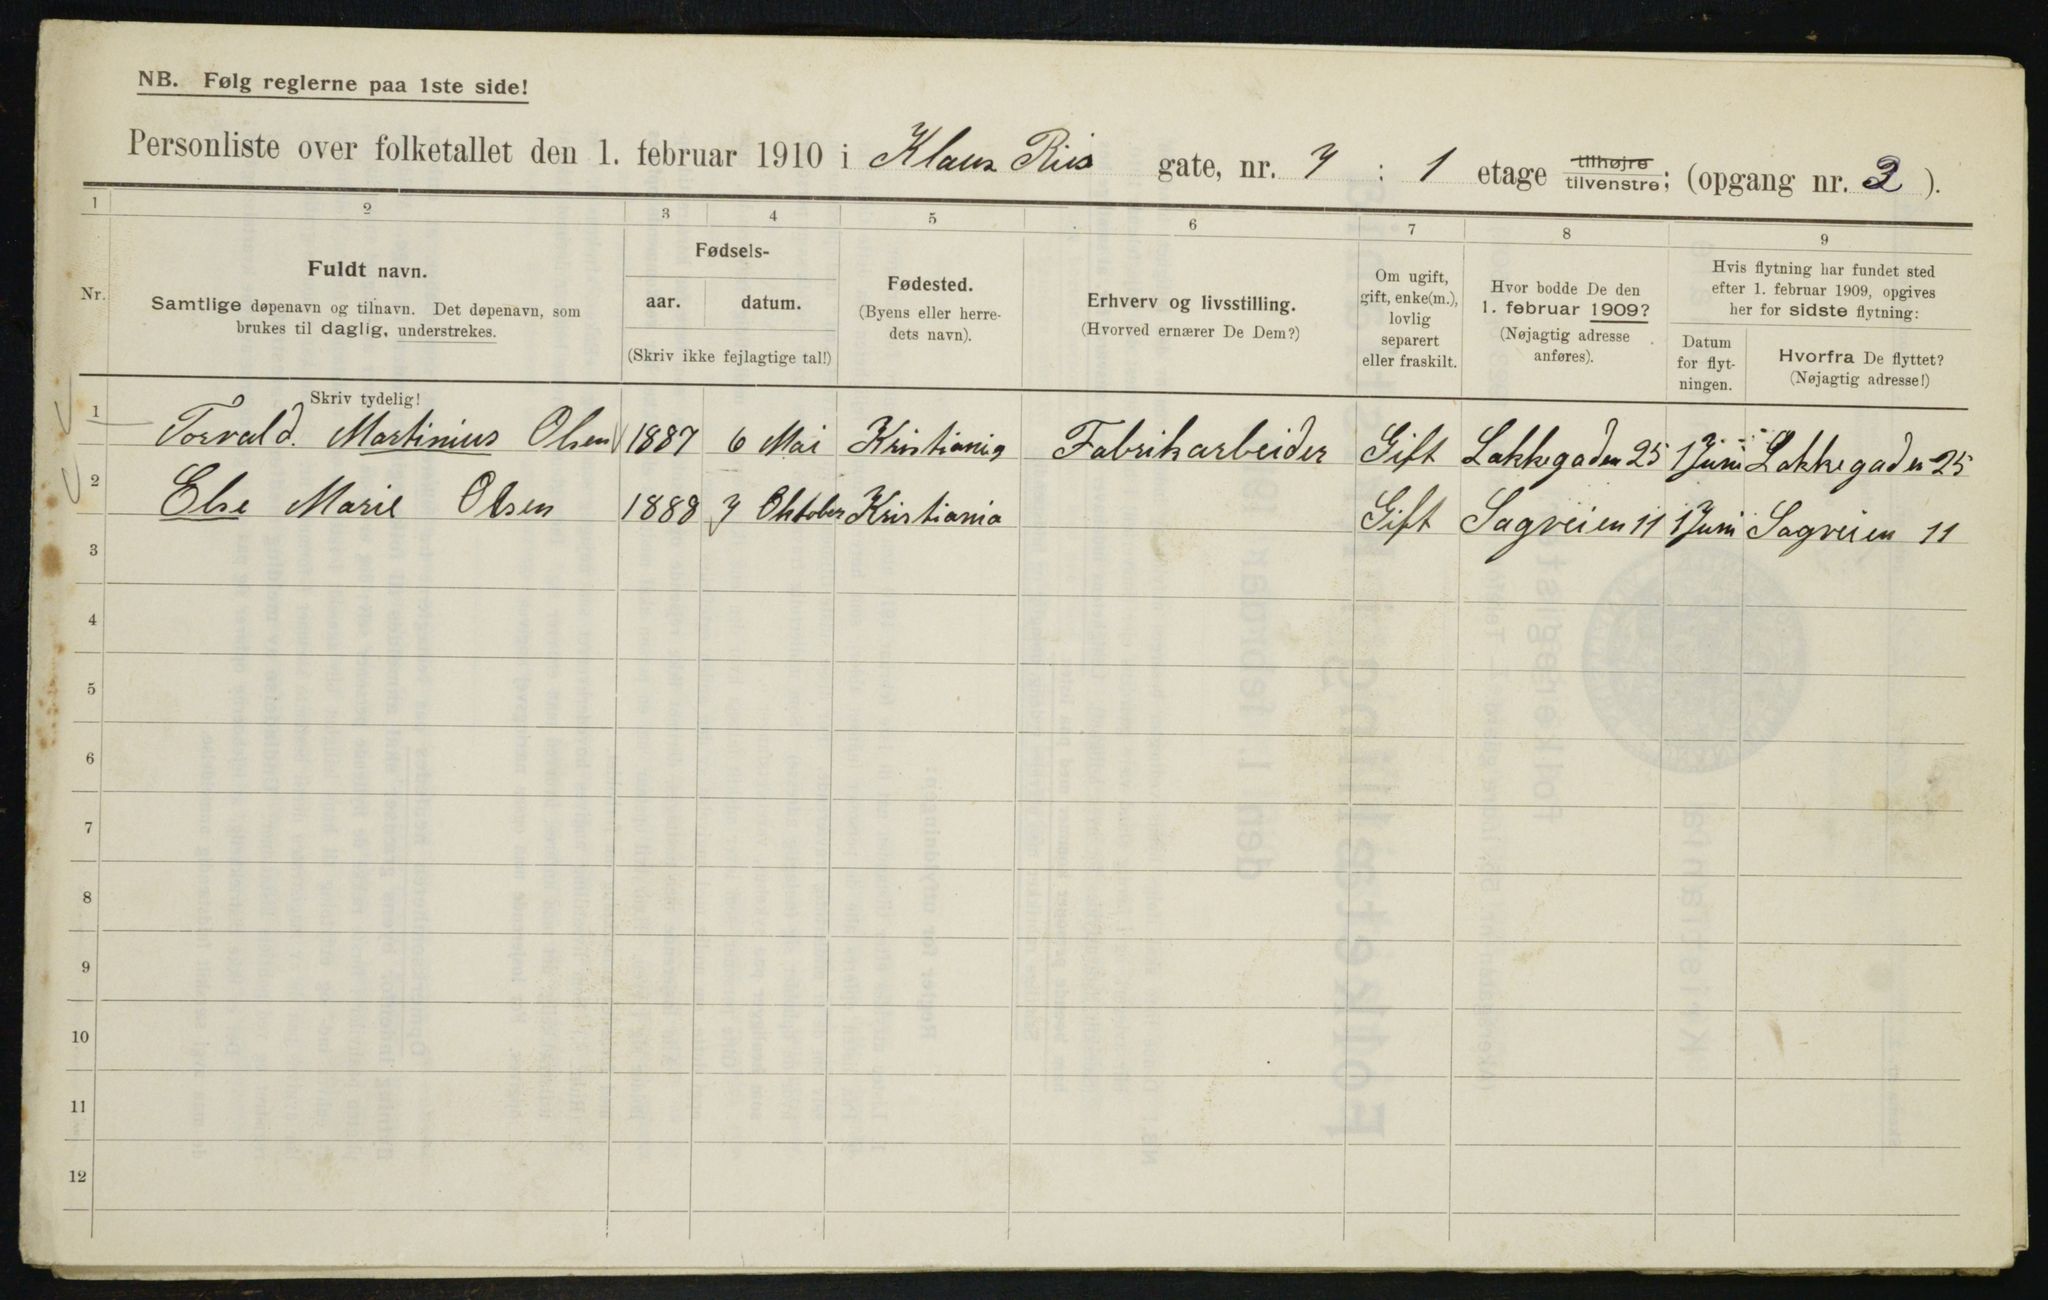 NB. Følg reglerne paa 1ste side!
Personliste over folketallet den 1. februar 1910 i Klaus Riis gate, nr. 7 : 1 etage tilhøjre tilvenstre; (opgang nr. 2 ).
1 2 3 4 5 6 7 8 9
Nr.
Fuldt navn.
Samtlige døpenavn og tilnavn. Det døpenavn, som
brukes til daglig, understrekes.
Fødsels-
aar. datum.
(Skriv ikke fejlagtige tal!)
Fødested.
(Byens eller herre-
dets navn).
Erhverv og livsstilling.
(Hvorved ernærer De Dem?)
Om ugift,
gift, enke(m.),
lovlig
separert
eller fraskilt.
Hvor bodde De den
1. februar 1909?
(Nøjagtig adresse
anføres).
Hvis flytning har fundet sted
efter 1. februar 1909, opgives
her for sidste flytning:
Datum
for flyt-
ningen.
Hvorfra De flyttet?
(Nøjagtig adresse!)
Skriv tydelig!
1 Torvald. Martinius Olsen 1887 6 Mai Kristiania Fabrikarbeider Gift Lakkegaden 25 1 Juni Lakkegaden 25
2 Else Marie Olsen 1888 7 Oktober Kristiania Gift Sagveien 11 1 Juni Sagveien 11
3
4
5
6
7
8
9
10
11
12